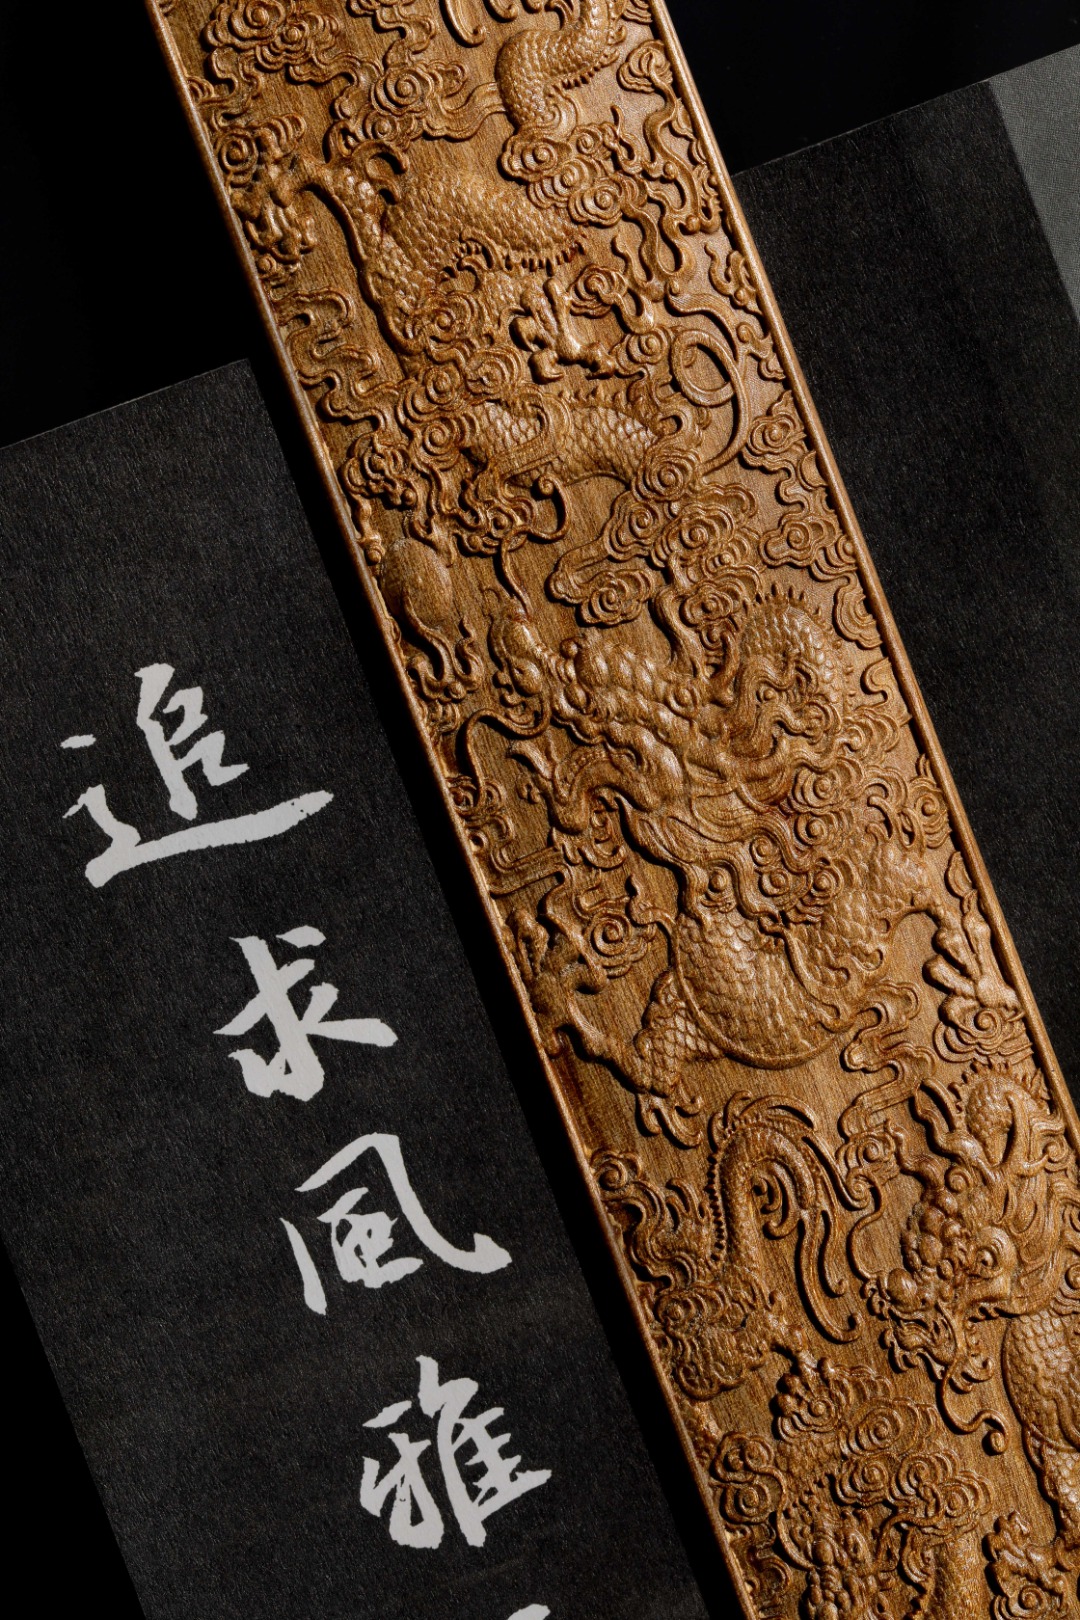 追求風雅